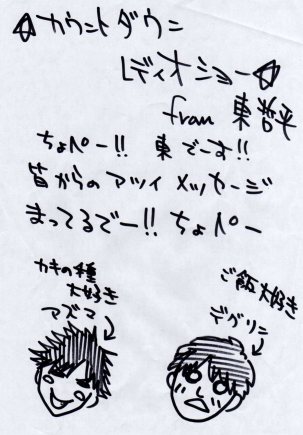 カウントダウン
レディオショー
from 東哲平
ちょりぺー!! 東でーす!!
皆からのアツイメッセージ
まってるでー!! ちょりぺー
カキの種
大好き
アズマ
ご飯大好き
デグリン